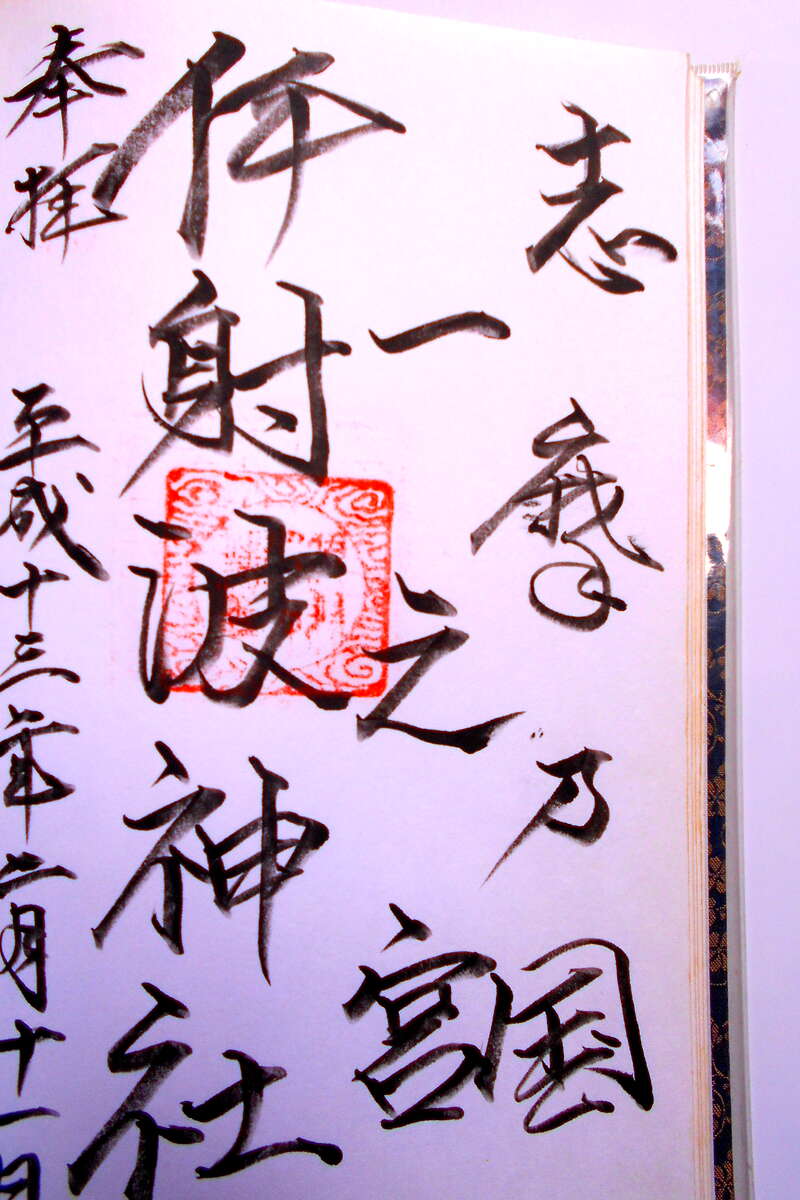 志摩乃国
一之宮
伊射波神社
奉拝 平成十三年二月十一日